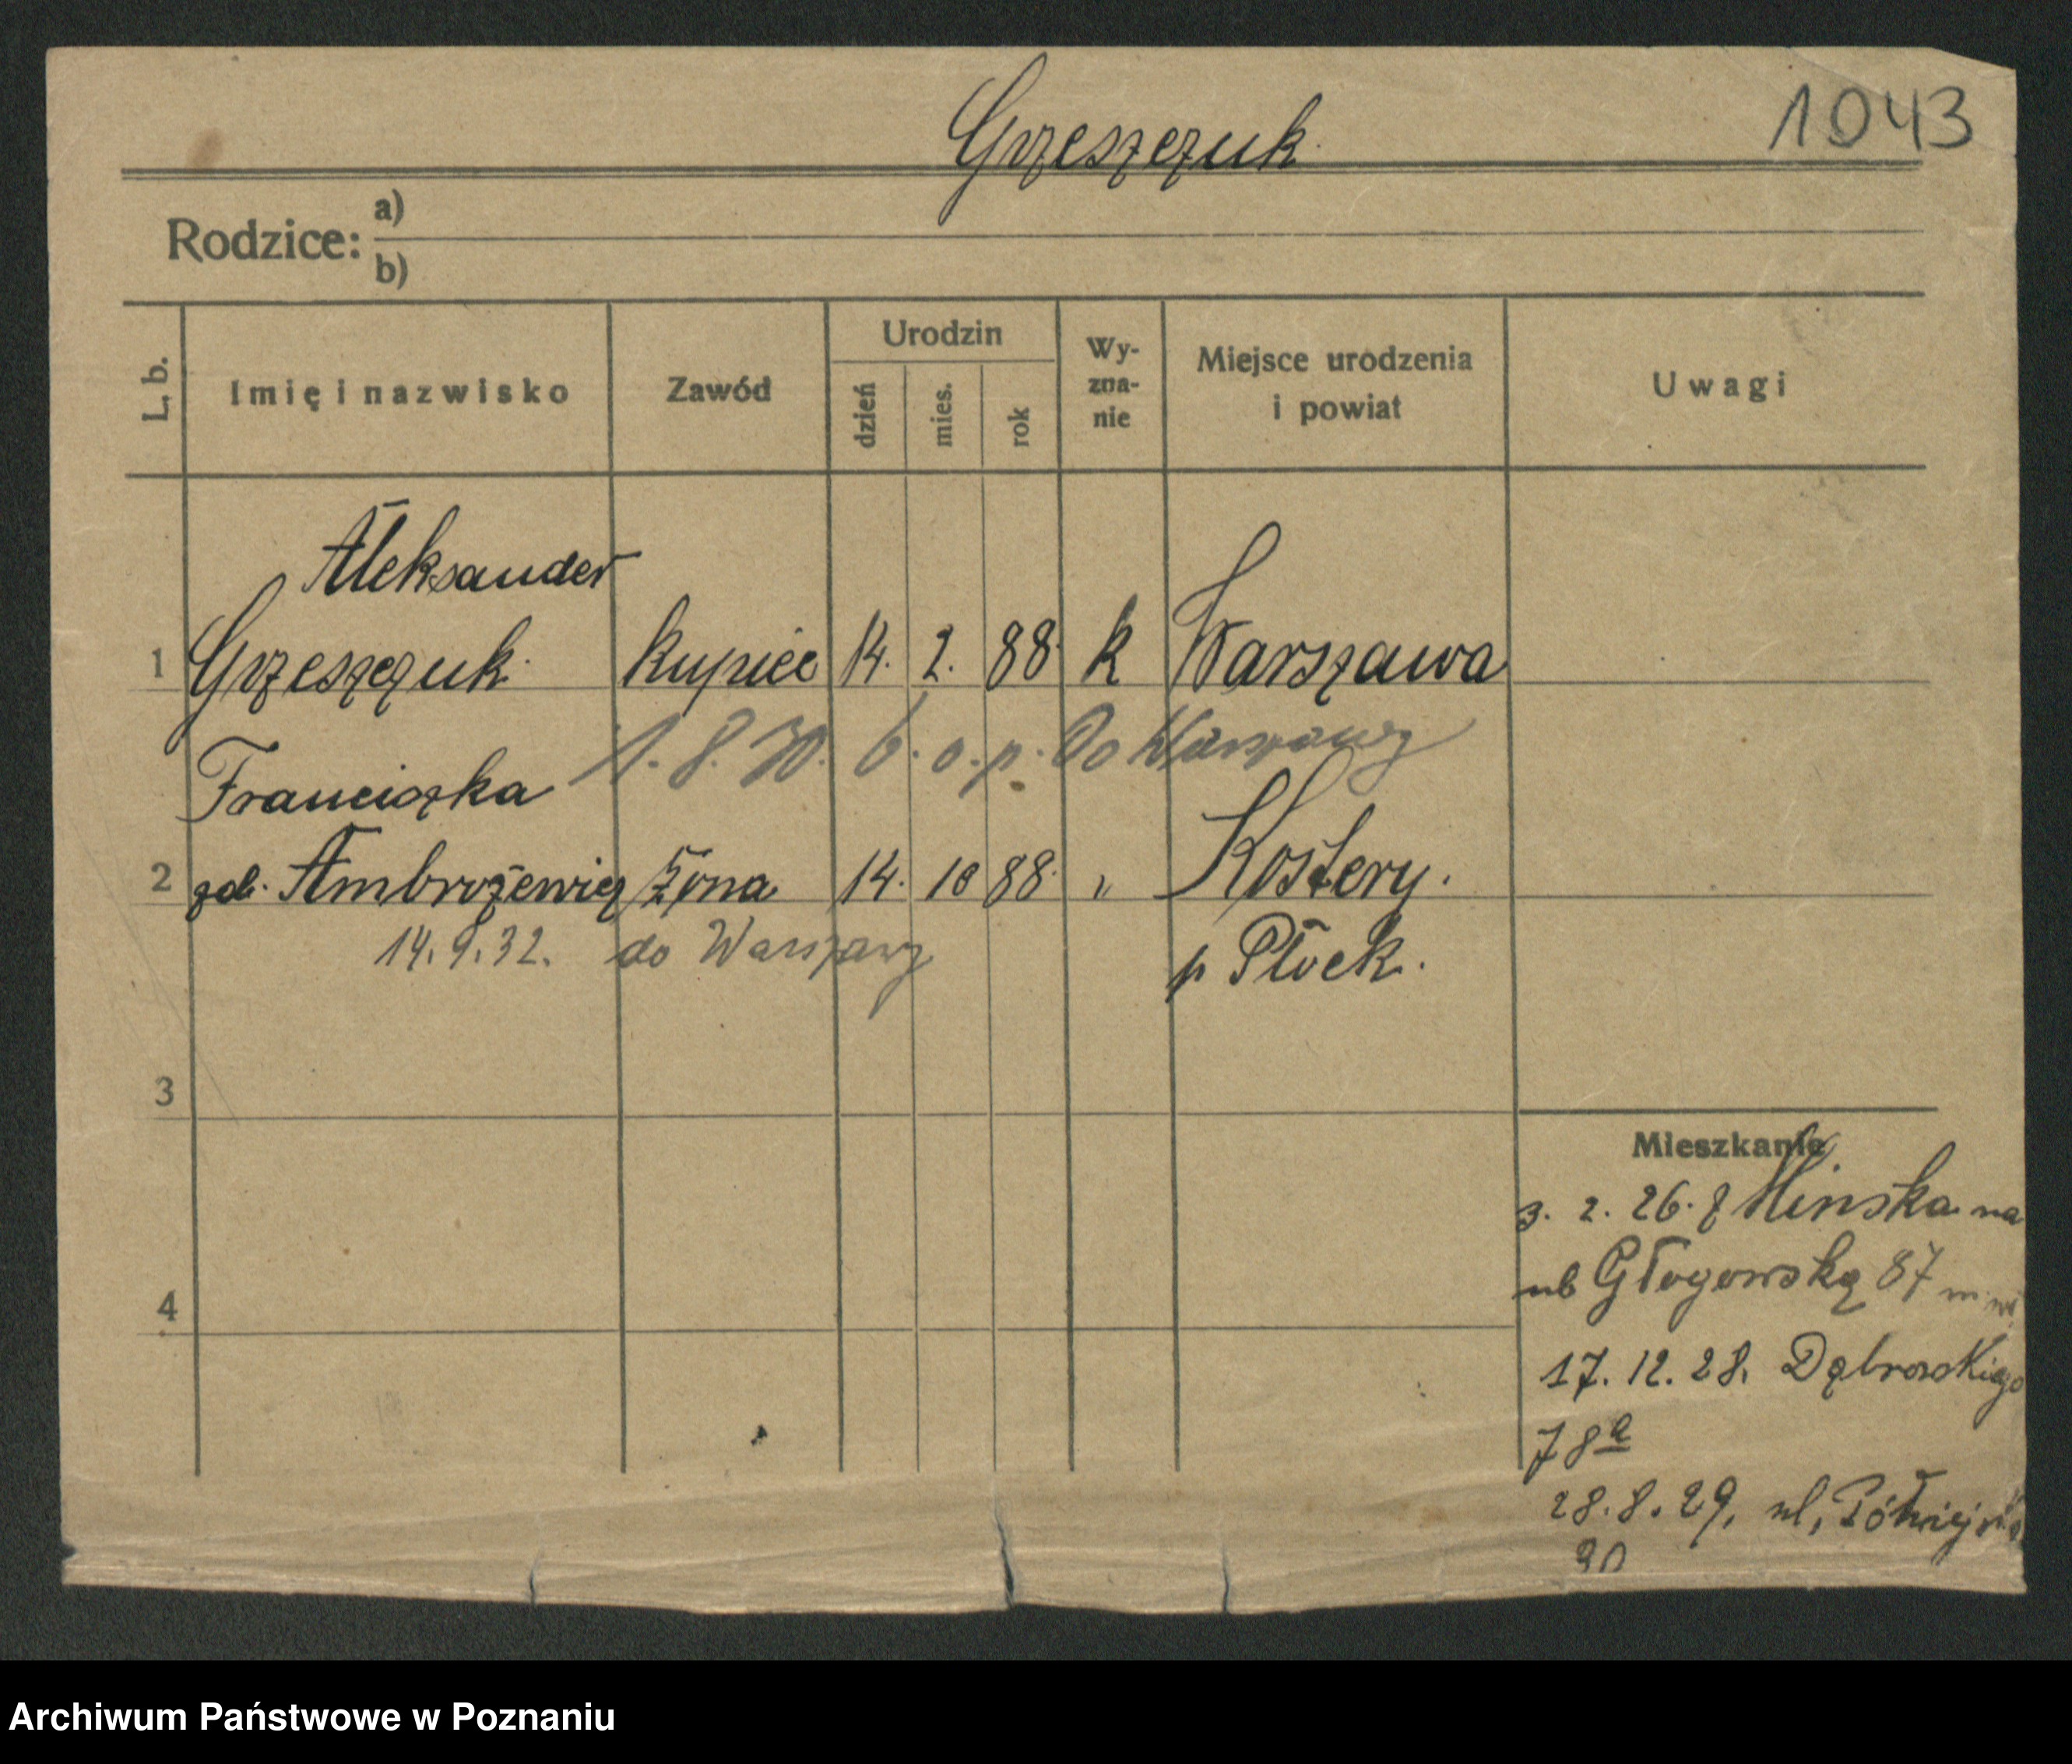 Grzeszczuk.
1043
Rodzice: a)
b)
L. b.
Imię i nazwisko
Zawód
Urodzin
dzień
mies.
rok
Wy-
zna-
nie
Miejsce urodzenia
i powiat
Uwagi
Aleksander
1 Grzeszczuk. Kupiec 14. 2. 88. k Warszawa
1. 8. 30. b. o. p. Do Warszawy
Franciszka
2 zd. Ambrożewicz żona 14. 10 88. " Kostery.
14. 9. 32. do Warszawy
p Płock.
3
4
Mieszkanie
3. 2. 26. z Mińska na
ul Głogowską 87 m
17. 12. 28. Dąbrowskiego
78a
28. 8. 29, ul, Półwiejska
Archiwum Państwowe w Poznaniu